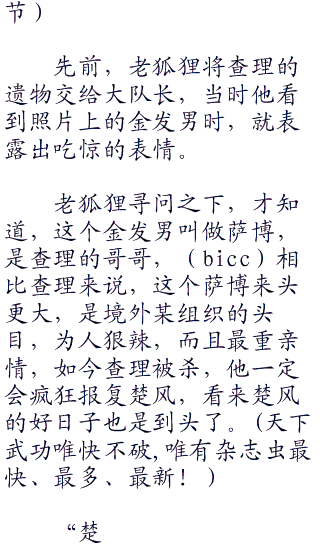 节）
先前，老狐狸将查理的
遗物交给大队长，当时他看
到照片上的金发男时，就表
露出吃惊的表情。
老狐狸寻问之下，才知
道，这个金发男叫做萨博，
是查理的哥哥，（bicc）相
比查理来说，这个萨博来头
更大，是境外某组织的头
目，为人狠辣，而且最重亲
情，如今查理被杀，他一定
会疯狂报复楚风，看来楚风
的好日子也是到头了。(天下
武功唯快不破,唯有杂志虫最
快、最多、最新！)
“楚